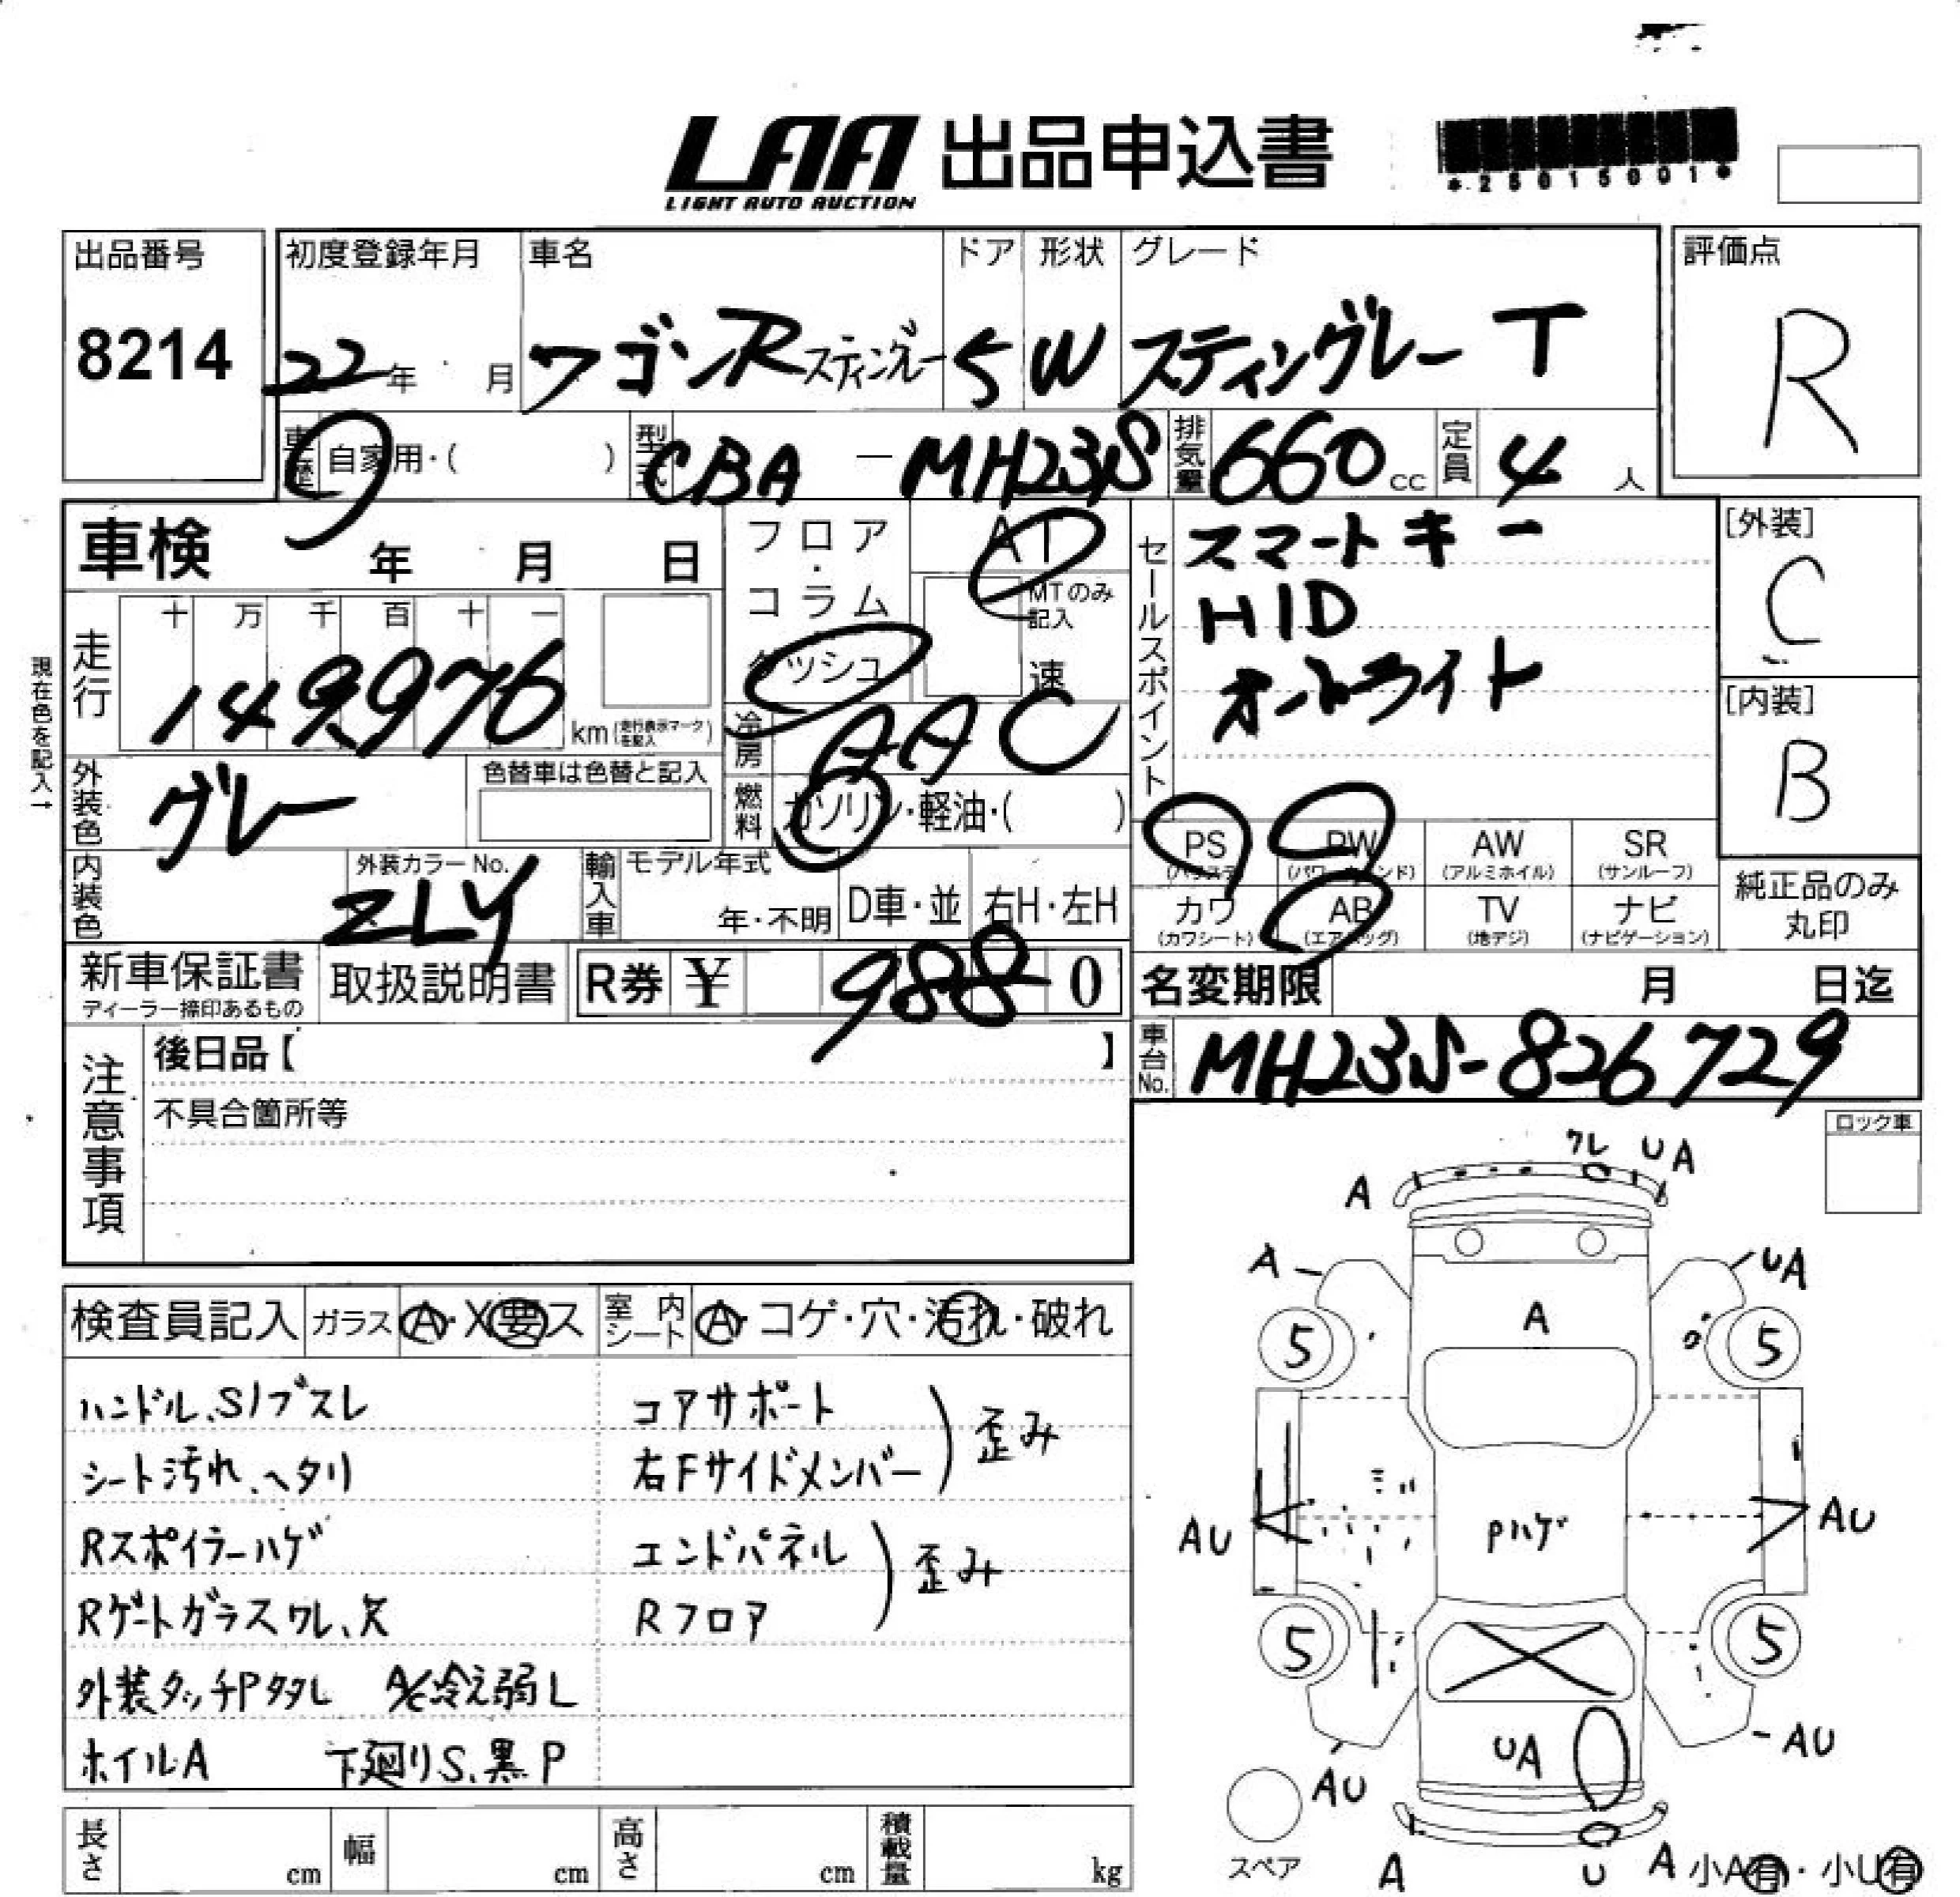 LAA 出品申込書
LIGHT AUTO AUCTION
*25015001*
出品番号
8214
初度登録年月
22年 月
車名
ワゴンRスティングレー
ドア
5
形状
W
グレード
スティングレー T
評価点
R
車歴 自家用・( )
型式 CBA — MH23S
排気量 660 cc
定員 4 人
車検 年 月 日
フロア・コラム
ダッシュ
AT
MTのみ記入
速
セールスポイント
スマートキー
HID
オートライト
[外装]
C
[内装]
B
現在色を記入→
走行
十 万 千 百 十 一
149,976
km(走行表示マークを記入)
冷房 AAC
外装色 グレー
色替車は色替と記入
燃料 ガソリン・軽油・( )
PS (パワステ)
PW (パワーウインド)
AW (アルミホイル)
SR (サンルーフ)
カワ (カワシート)
AB (エアバッグ)
TV (地デジ)
ナビ (ナビゲーション)
純正品のみ
丸印
内装色
外装カラーNo.
ZLY
輸入車
モデル年式
年・不明
D車・並
右H・左H
新車保証書
ディーラー捺印あるもの
取扱説明書
R券 ¥ 9880
名変期限 月 日迄
車台No. MH23S-826729
注意事項
後日品【 】
不具合箇所等
ロック車
検査員記入
ガラス A・X要ス
室内シート A・コゲ・穴・汚れ・破れ
ハンドル、S/ブスレ
シート汚れ、ヘタリ
Rスポイラーハゲ
Rゲートガラスワレ、欠
外装タッチPタタレ A/C冷え弱し
ホイルA 下廻りS、黒P
コアサポート
右Fサイドメンバー
歪み
エンドパネル
Rフロア
歪み
ワレ UA
A
A
UA
A
5
5
AU
Pハゲ
AU
5
5
UA
AU
AU
スペア
A
U
A
小A有・小U有
長さ cm
幅 cm
高さ cm
積載量 kg